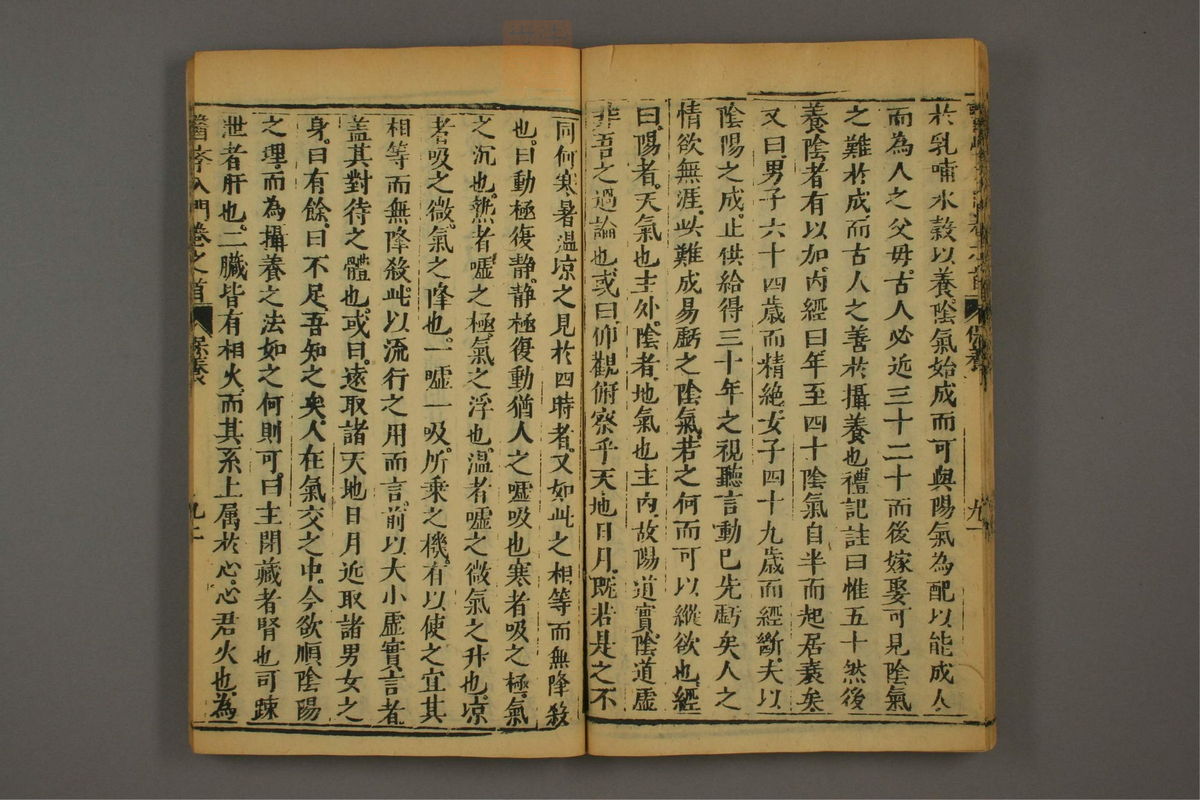 於乳哺水穀以養陰氣始成而可與陽氣為配以能成人
而為人之父母古人必近三十二十而後嫁娶可見陰氣
之難於成而古人之善於攝養也禮記註曰惟五十然後
養陰者有以加內經曰年至四十陰氣自半而起居衰矣
又曰男子六十四歲而精絶女子四十九歲而經斷夫以
陰陽之成止供給得三十年之視聽言動已先虧矣人之
情欲無涯此難成易虧之陰氣若之何而可以縱欲也經
曰陽者天氣也主外陰者地氣也主內故陽道實陰道虛
非吾之過論也或曰仰觀俯察乎天地日月既若是之不
同何寒暑温凉之見於四時者又如此之相等而無降殺
也曰動極復静静極復動猶人之嘘吸也寒者吸之極氣
之沉也熱者嘘之極氣之浮也温者嘘之微氣之升也凉
者吸之微氣之降也一嘘一吸所乗之機有以使之宜其
相等而無降殺此以流行之用而言前以大小虛實言者
盖其對待之體也或曰遠取諸天地日月近取諸男女之
身曰有餘曰不足吾知之矣人在氣交之中今欲順陰陽
之理而為攝養之法如之何則可曰主閉藏者腎也可踈
泄者肝也二臟皆有相火而其系上属於心心君火也為
醫學入門卷之首 保養 九二